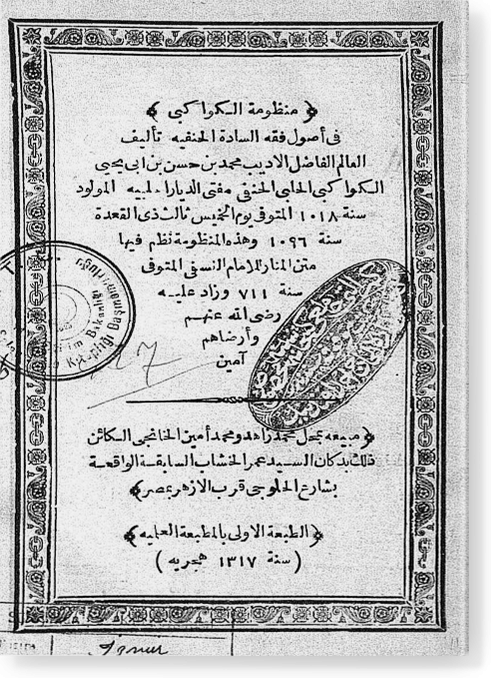 ﴿ منظومة الكواكبى ﴾
فى أصول فقه السادة الحنفيه تأليف
العالم الفاضل الاديب محمد بن حسن بن ابى يحيى
الكواكبى الحلبى الحنفى مفتى الديار الحلبيه المولود
سنة ١٠١٨ المتوفى يوم الخميس ثالث ذى القعدة
سنة ١٠٩٦ وهذه المنظومة نظم فيها
متن المنار للامام النسفى المتوفى
سنة ٧١١ وزاد عليه
رضى الله عنهم
وأرضاهم
آمين
27
﴿ مبيعه بمحل محمد زاهد ومحمد أمين الخانجى الكائن
ذلك بدكان السيد عمر الخشاب السابقة الواقعة
بشارع الحلوجى قرب الازهر بمصر ﴾
﴿ الطبعة الاولى بالمطبعة العلميه ﴾
( سنة ١٣١٧ هجريه )